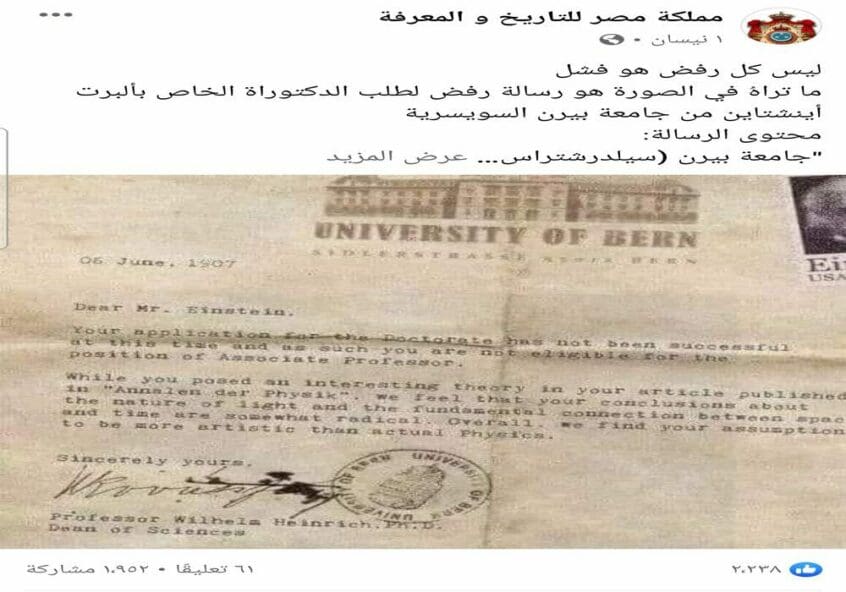 مملكة مصر للتاريخ و المعرفة
١ نيسان
ليس كل رفض هو فشل
ما تراة في الصورة هو رسالة رفض لطلب الدكتوراة الخاص بألبرت
أينشتاين من جامعة بيرن السويسرية
محتوى الرسالة:
"جامعة بيرن (سيلدرشتراس... عرض المزيد
UNIVERSITY OF BERN
SIDLERSTRASSE BERN
Ei
USA
06 June, 1907
Dear Mr. Einstein,
Your application for the Doctorate has not been successful
at this time and as such you are not eligible for the
position of Associate Professor.
While you posed an interesting theory in your article published
in "Annalen der Physik", we feel that your conclusions about
the nature of light and the fundamental connection between spac
and time are somewhat radical. Overall, we find your assumption
to be more artistic than actual Physics.
Sincerely yours,
UNIVERSITY OF BERN
Professor Wilhelm Heinrich, Ph.D.
Dean of Sciences
٢،٢٣٨
٦١ تعليقًا • ١،٩٥٢ مشاركة